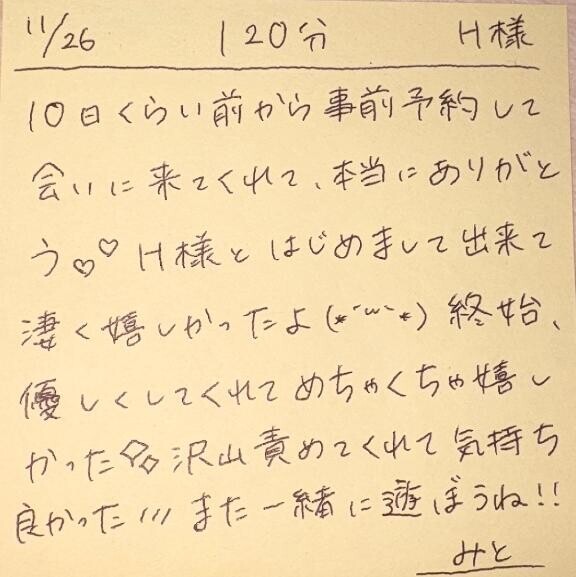 11/26 120分 H様
10日くらい前から事前予約して
会いに来てくれて、本当にありがと
う♡♡ H様とはじめまして出来て
凄く嬉しかったよ(*´ω`*) 終始、
優しくしてくれてめちゃくちゃ嬉し
かった◇◇沢山責めてくれて気持ち
良かった/// また一緒に遊ぼうね!!
みと